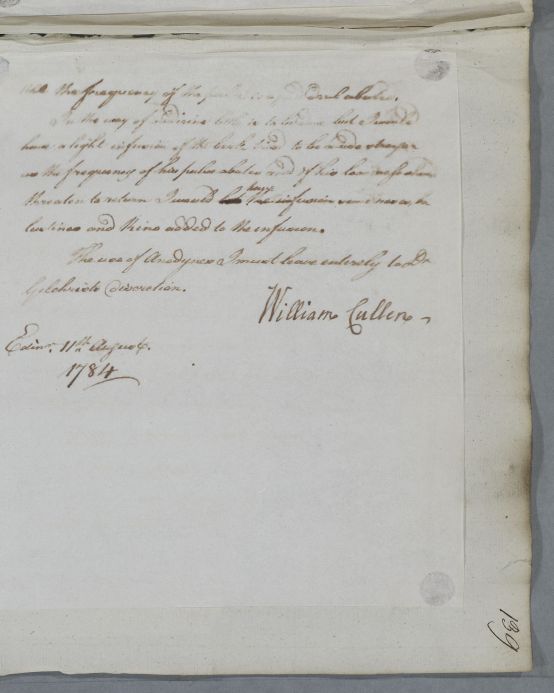 the frequency of the pulse abates.
In the way of medicine little is to be done but I would
have a light infusion of the bark tried to be made stronger
as the frequency of his pulse abates and if his looseness
threaten to return I would have the infusion
and Kino added to the infusion.
The use of Anodynes I must leave entirely to Dr
Gilchrists discretion.
William Cullen
Edinr. 11th August.
1784
139